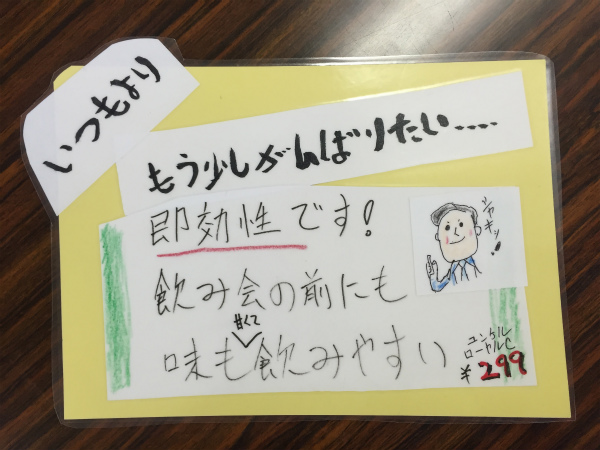 いつもより
もう少しがんばりたい.....
即効性です!
シャキッ!
飲み会の前にも
味も甘くて飲みやすい
ユンケル
ローヤルC
¥299